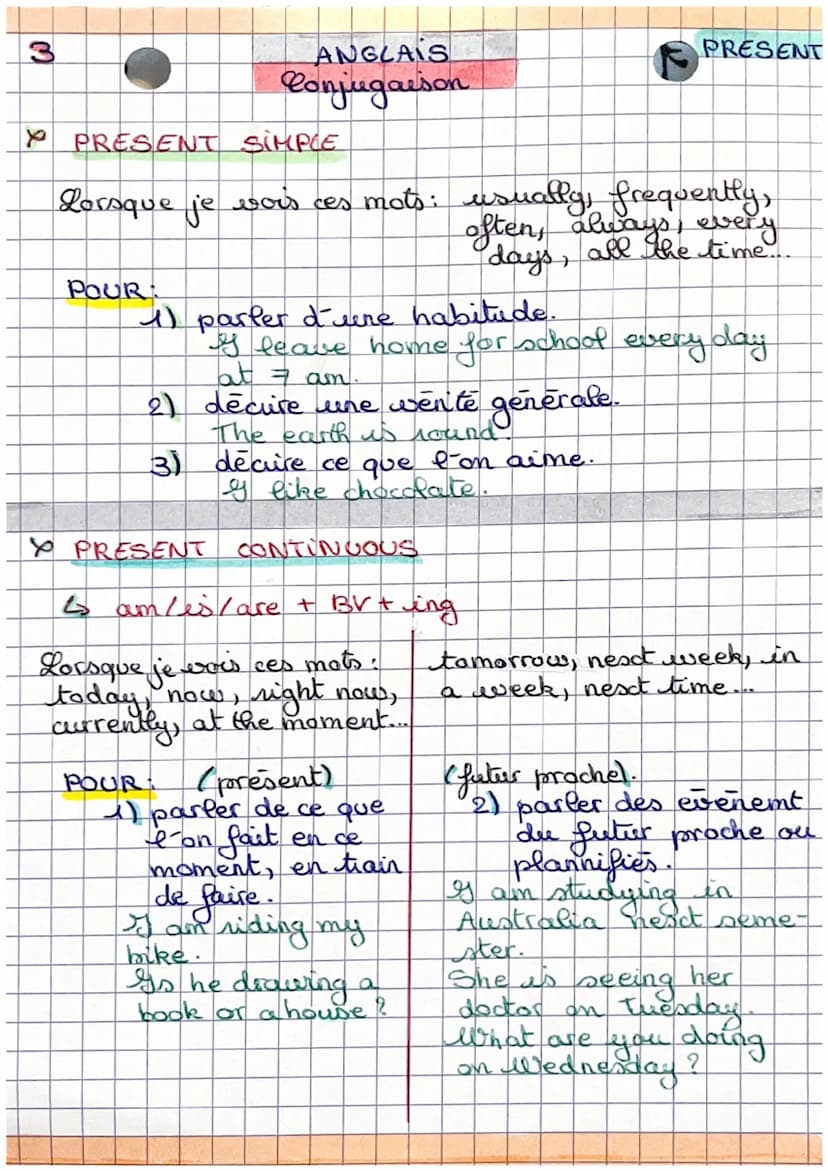 3
ANGLAIS
PRESENT
Conjugaison
PRESENT SIMPLE
Lorsque je vois ces mots: usually, frequently,
often, always, every
days, all the time...
POUR:
1) parler d'une habitude.
I leave home for school every day
at 7 am.
2) décrire une vérité générale.
The earth is round.
3) décrire ce que l'on aime.
I like chocolate.
PRESENT CONTINUOUS
↳ am/is/are + BV + ing
Lorsque je vois ces mots:
today, now, right now,
currently, at the moment...
tomorrow, next week, in
a week, next time...
POUR: (présent)
1) parler de ce que
l'on fait en ce
moment, en train
de faire.
I am riding my
bike.
Is he drawing a
book or a house?
(futur proche).
2) parler des évènemt
du futur proche ou
plannifiés.
I am studying in
Australia next seme-
ster.
She is seeing her
doctor on Tuesday.
What are you doing
on Wednesday?